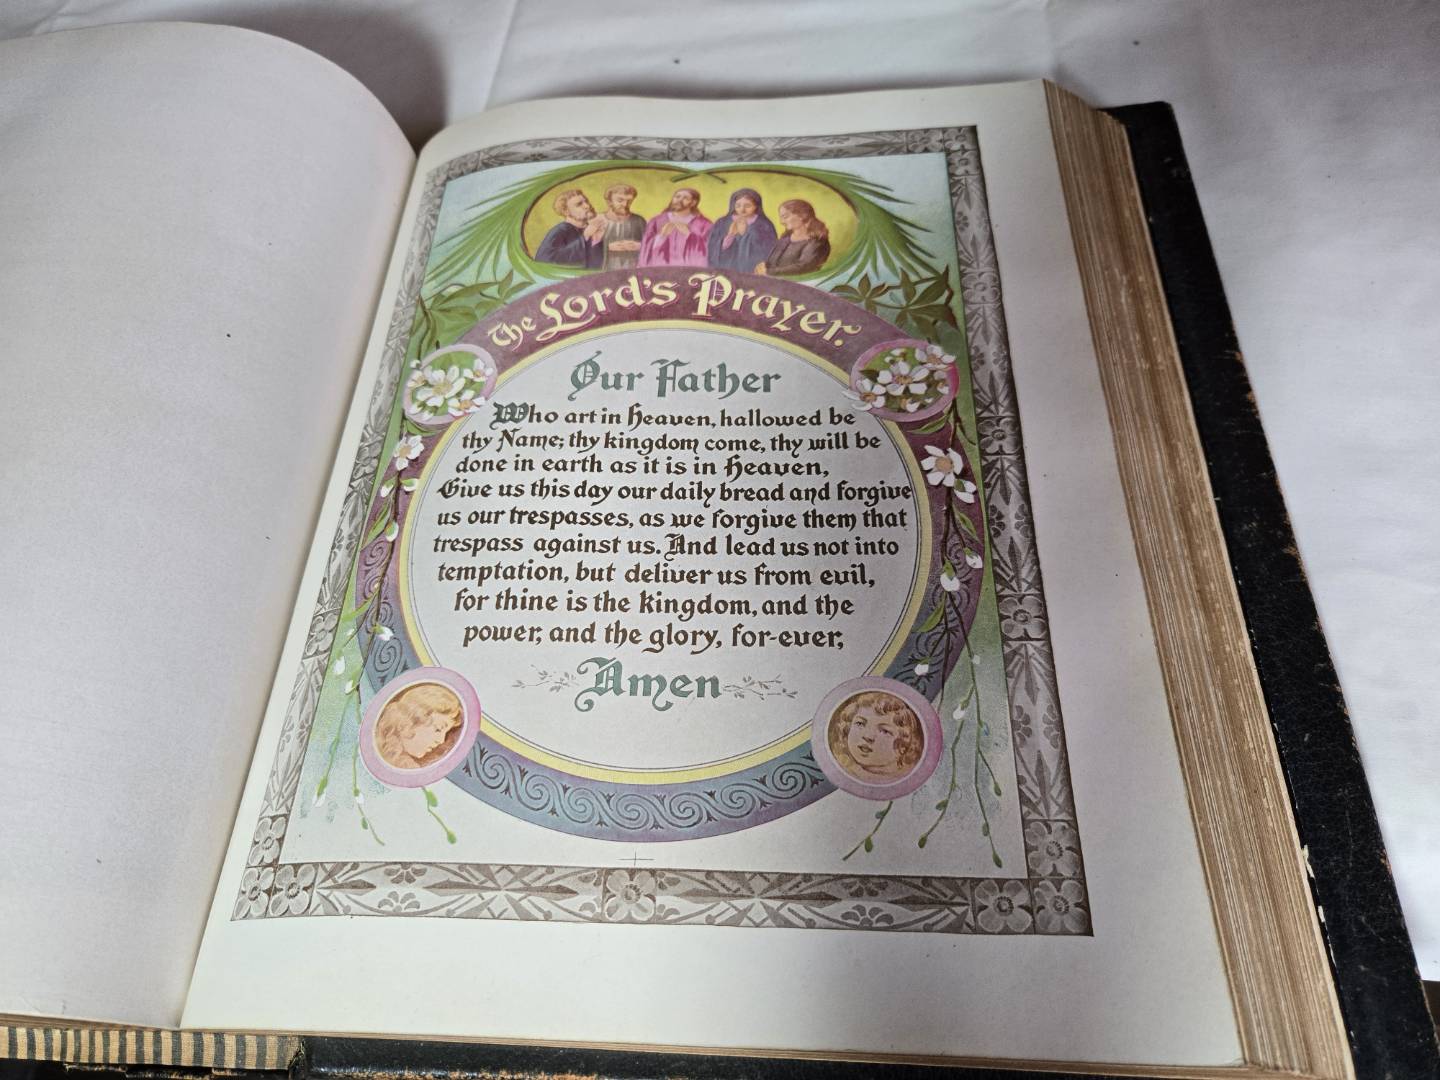 The Lord's Prayer.
Our Father
Who art in Heaven, hallowed be
thy Name; thy kingdom come, thy will be
done in earth as it is in Heaven,
Give us this day our daily bread and forgive
us our trespasses, as we forgive them that
trespass against us. And lead us not into
temptation, but deliver us from evil,
for thine is the kingdom, and the
power, and the glory, for-ever,
Amen